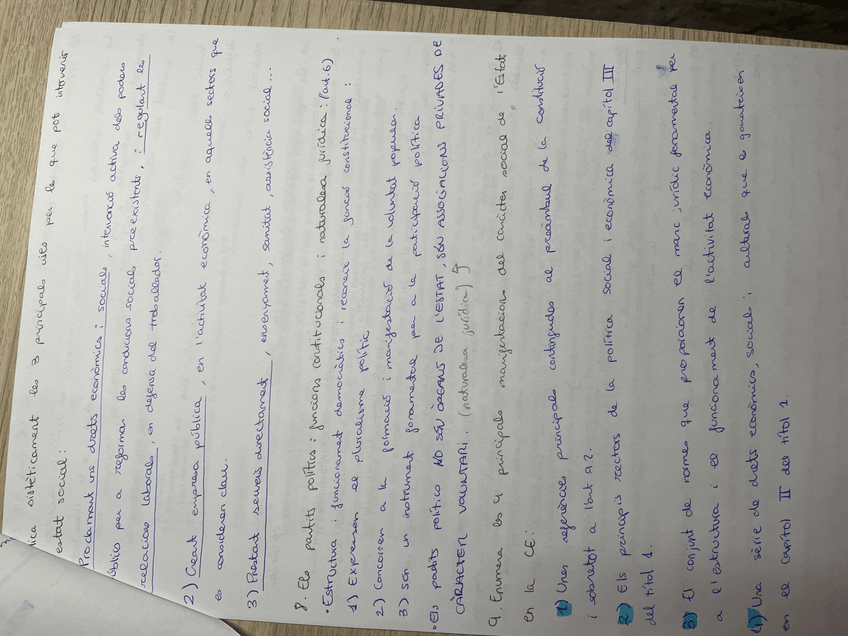 lica sintèticament les 3 principals vies per le que pot intervenir
estat social:
Proclamant uns drets econòmics i socials, intervenció activa dels poders
públics per a reformar les condicions socials preexistents, i regulant les
relacions laborals, en defensa del treballador.
2) Creant empresa pública, en l'activitat econòmica, en aquells sectors que
es consideren clau.
3) Prestant serveis directament, ensenyament, sanitat, assistència social...
8. Els partits polítics: funcions constitucionals i naturalesa jurídica: (art. 6)
• Estructura i funcionament democràtics i reconeix la funció constitucional:
1) Expressen el pluralisme polític
2) Concorren a la formació i manifestació de la voluntat popular.
3) són un instrument fonamental per a la participació política
• Els partits polítics NO SÓN ÒRGANS DE L'ESTAT, SÓN ASSOCIACIONS PRIVADES DE
CÀRACTER VOLUNTARI. (naturalesa jurídica)
9. Enumera les 4 principals manifestacions del caràcter social de l'Estat
en la CE:
1) Unes referències principals contingudes al preàmbul de la constitució
i sobretot a l'art 9.2.
2) Els principis rectors de la política social i econòmica del capítol III
del títol 1.
3) El conjunt de normes que proporcionen el marc jurídic fonamental per
a l'estructura i el funcionament de l'activitat econòmica.
4) Una sèrie de drets econòmics, socials i culturals que es garanteixen
en el capítol II del títol 1.